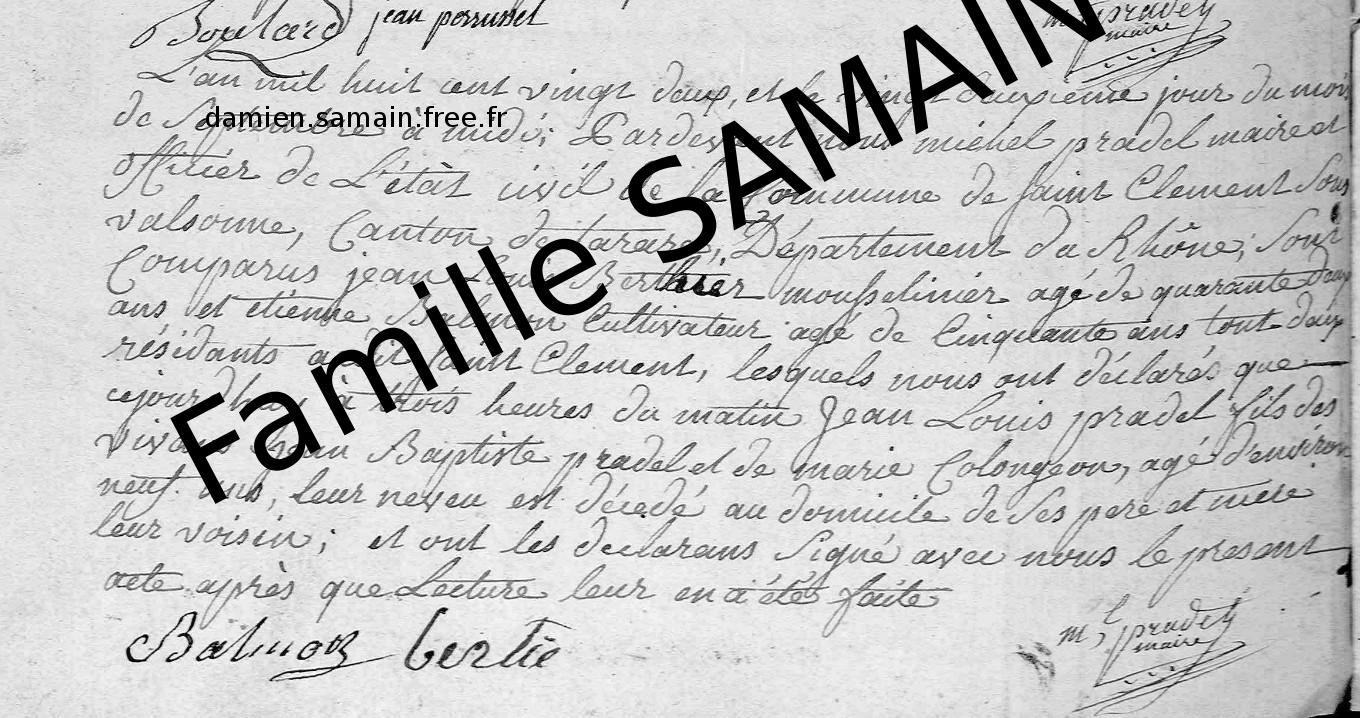 Boulard jean perrussel m.l pradel
maire
L'an mil huit cent vingt deux, et le vingt deuxieme jour du mois
damien.samain.free.fr
de Septembre à midi; Pardevant nous michel pradel maire et
officier de L'état civil de la Commune de saint Clement Sous
valsonne, Canton de tarare, Département du Rhône; Sont
Comparus jean Louis Berthier mousselinier agé de quarante deux
ans et etienne Balmon Cultivateur agé de Cinquante ans tout deux
résidants audit saint Clement, lesquels nous ont déclarés que
cejourd'hui à trois heures du matin Jean Louis pradel fils des
vivans Jean Baptiste pradel et de marie Colongeon, agé d'environ
neuf ans, leur neveu est décedé au domicile de Ses pere et mere
leur voisin; et ont les declarans Signé avec nous le present
acte après que Lecture leur en a été faite
Balmon bertie m.l pradel
maire
Famille SAMAIN